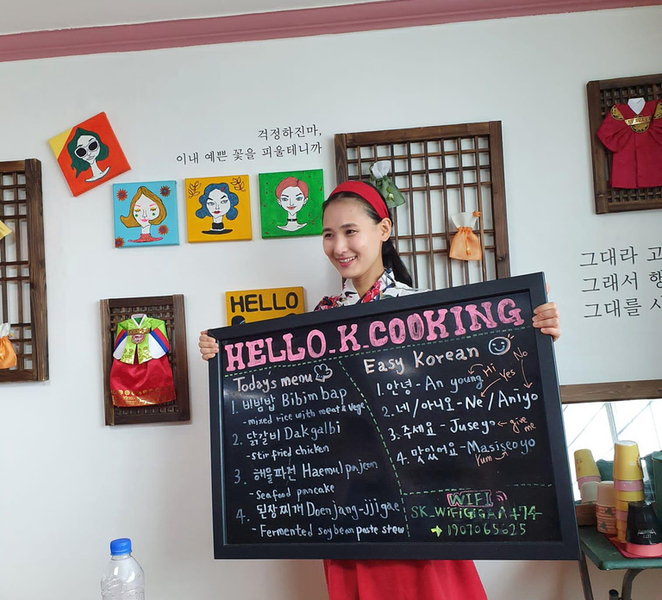 걱정하진마,
이내 예쁜 꽃을 피울테니까
그대라 고
그래서 행
그대를 사
HELLO
HELLO_K_COOKING
Todays menu
1. 비빔밥 Bibimbap
-mixed rice with meat & vege
2. 닭갈비 Dakgalbi
-stir fried chicken
3. 해물파전 Haemul pajeon
-Seafood pancake
4. 된장찌개 Doenjang-jjigae
-Fermented soybean paste stew
Easy Korean
1. 안녕 - An young
Hi
Yes
No
2. 네/아니오 - Ne/Aniyo
3. 주세요 - Juseyo
give me
4. 맛있어요 - Masiseoyo
Yum
WIFI
→ 1907065625